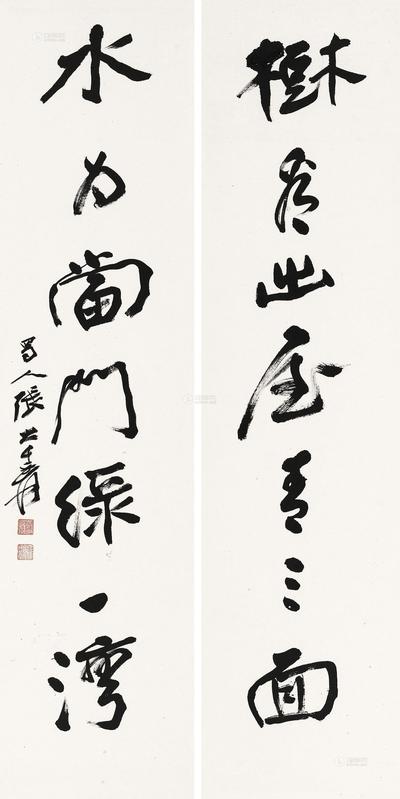 樹爲出屋青三面
水为當門綠一灣
蜀人張大千爰